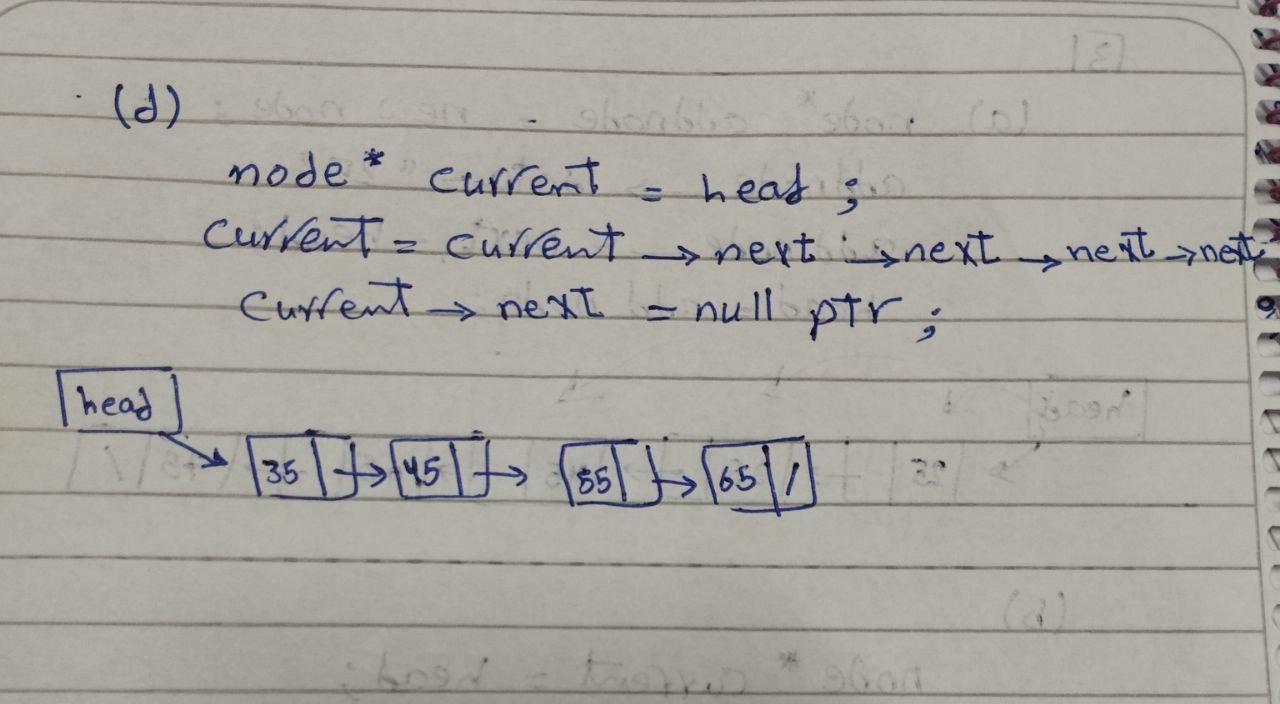 (d)
node * current = head ;
current = current → next → next → next → next
current → next = null ptr ;
head
35 45 55 65 /